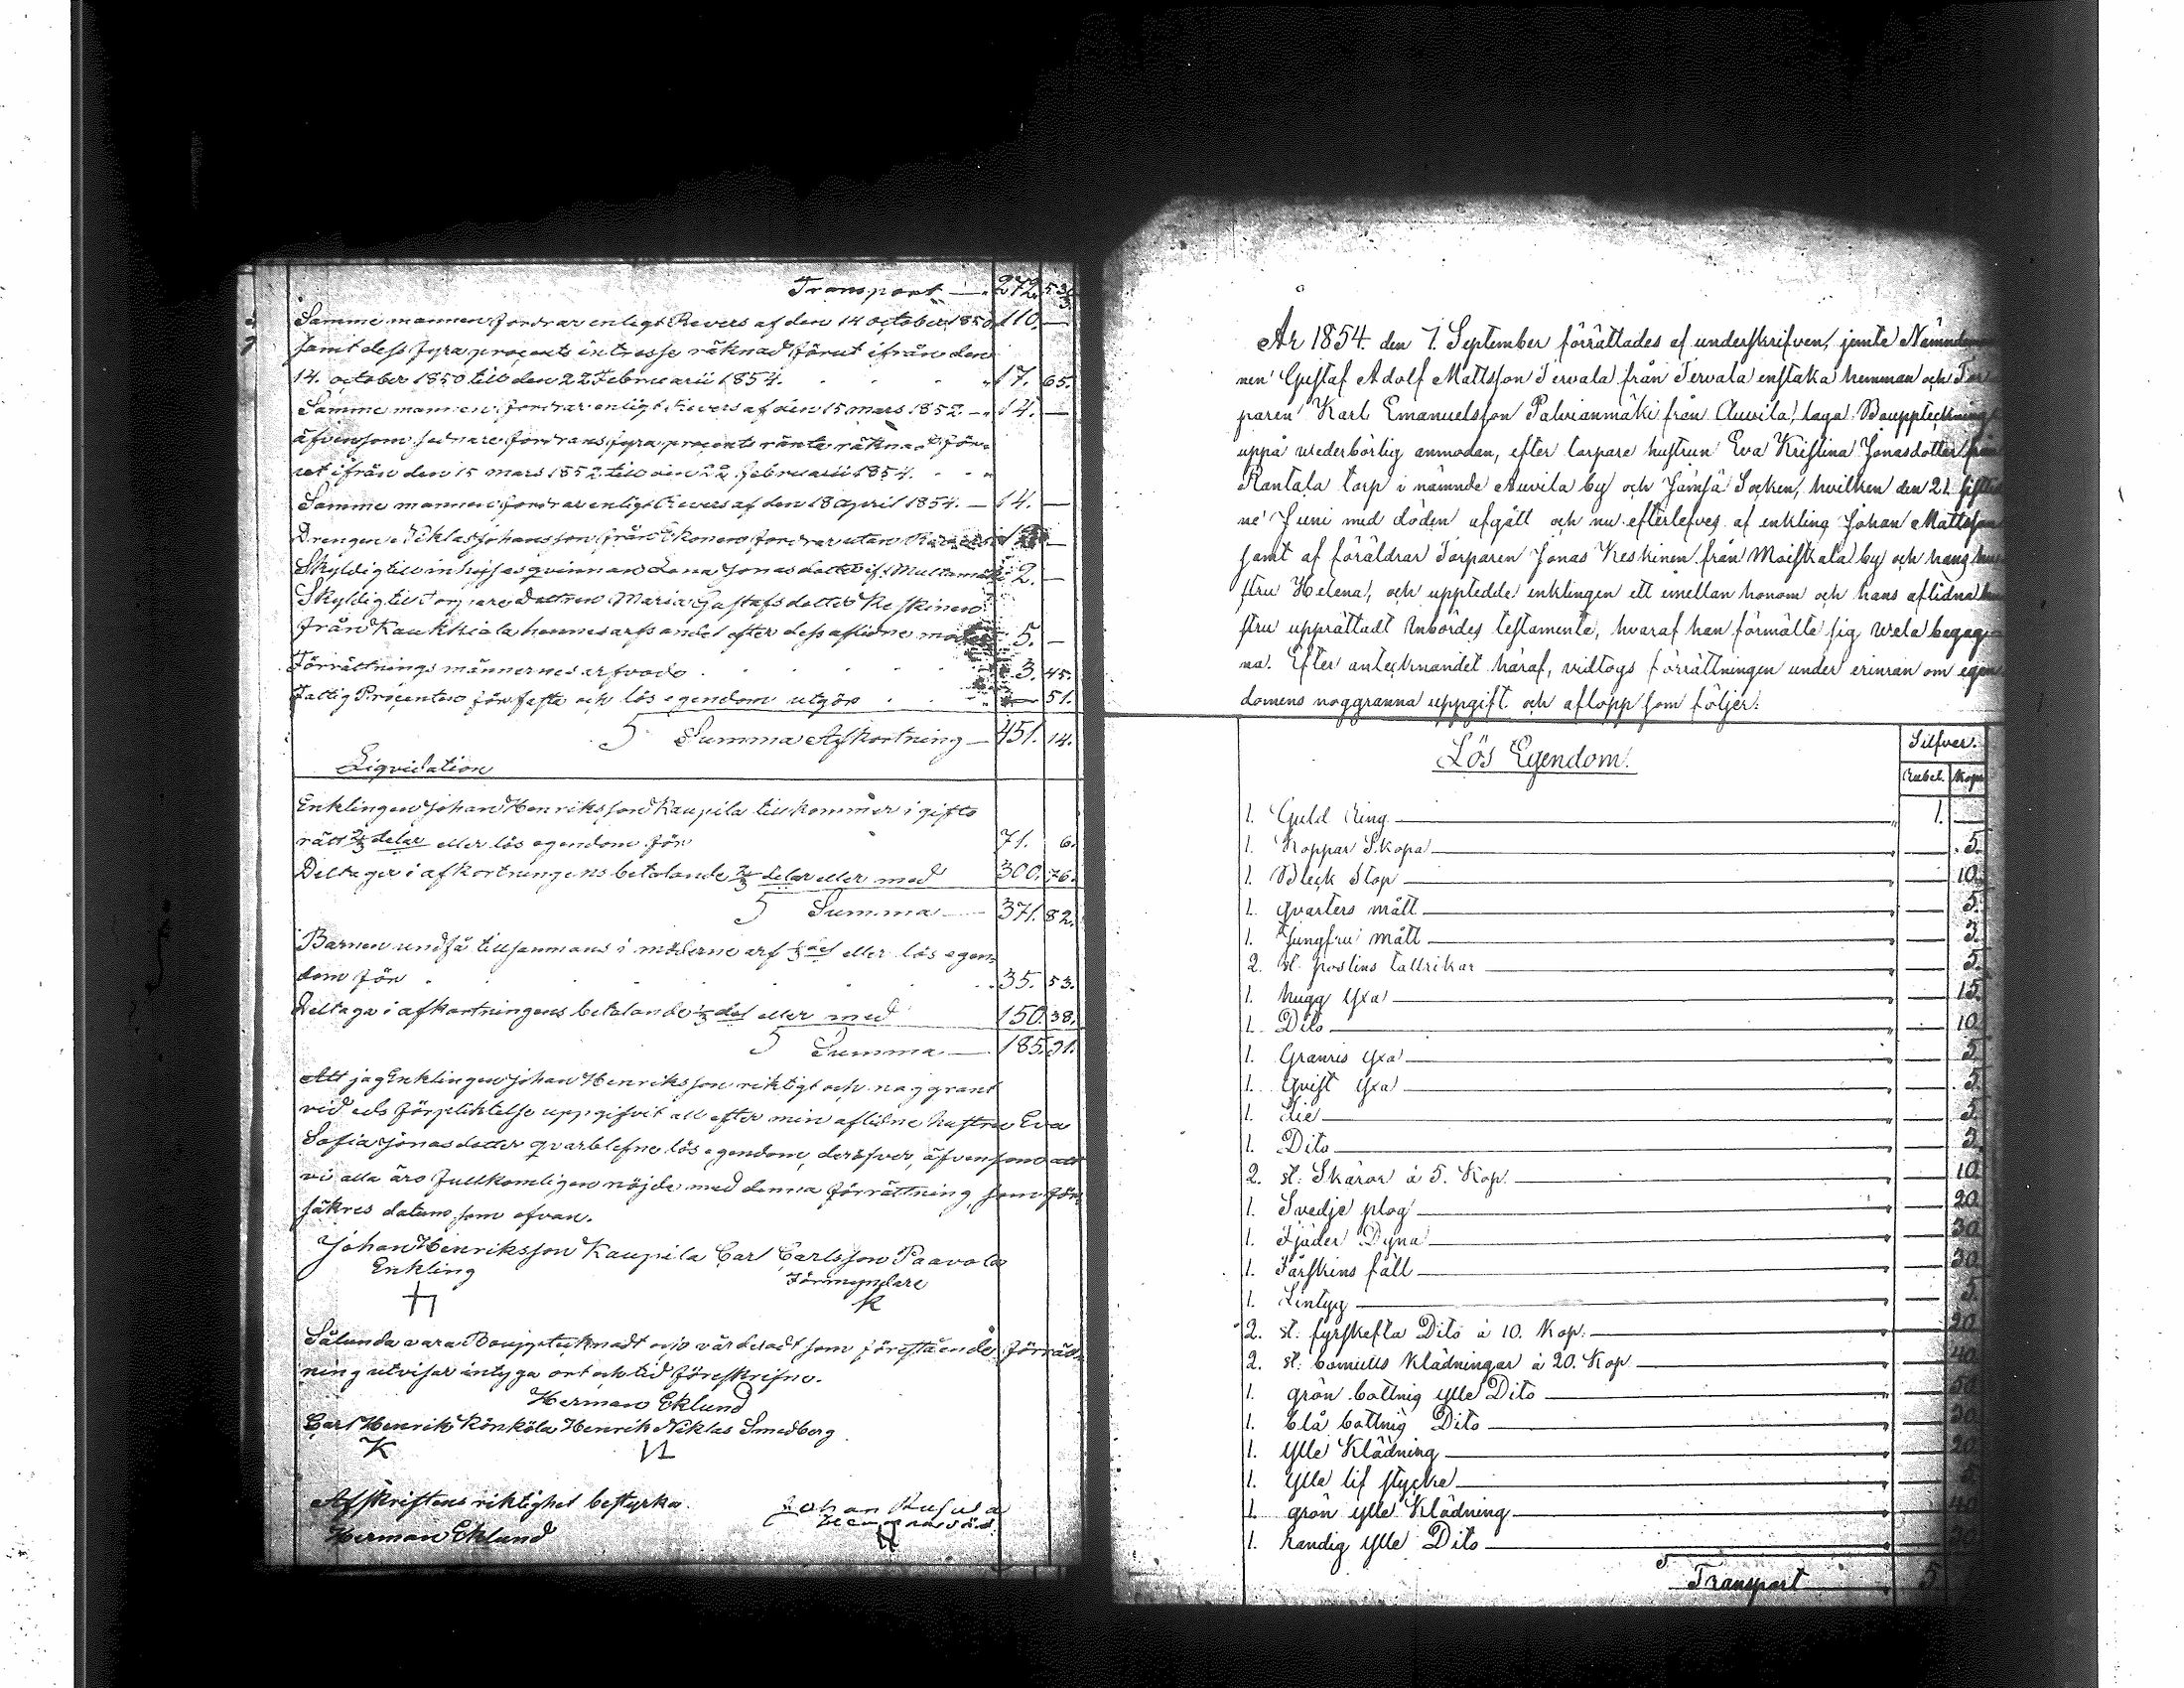 Transport — 272. 53
Samme mannen fordrar enligt Revers af den 14 october 1850 110. —
samt dess fyra procents intresse räknad förut ifrån den
14. october 1850 till den 22 Februarii 1854. 17. 65.
Samme mannen fordrar enligt Revers af den 15 mars 1852 — 14. —
äfvensom sednare fordrans fyra procents ränta räknad för-
ut ifrån den 15 mars 1852 till den 22 februarii 1854.
Samme mannen fordrar enligt Revers af den 18 April 1854. — 14. —
Drengen Niklas Johansson från Ekonen fordrar utan
Skyldig till inhysesqvinnan Lena Jonasdotter if. Multamäki 2. —
Skyldig till Torparedottren Maria Gustafsdotter Keskinen
från Kaukkiala hennes arfsandel efter dess aflidne 5. —
Förrättningsmännernes arfvode 3. 45.
Fattig Procenten för fasta och lös egendom utgör 51.
S Summa Afkortning — 451. 14.
Liqvidation
Enklingen Johan Henriksson Kaupila tillkommer i gifto
rätt 2/3 delar eller lös egendom för 71. 6.
Deltager i afkortningens betalande 2/3 delar eller med 300. 76.
S Summa — 371. 82.
Barnen undfå tillsammans i möderne arf 1/3 del eller lös egen-
dom för 35. 53.
Deltaga i afkortningens betalande 1/3 del eller med 150. 38.
S Summa — 185. 91.
Att jag Enklingen Johan Henriksson riktigt och noggrant
vid eds förpliktelse uppgifvit all efter min aflidne hustru Eva
Sofia Jonasdotter qvarblefne lös egendom, deröfver, äfvensom att
vi alla äro fullkomligen nöjde med denna förrättning, som för-
säkres datum som ofvan.
Johan Henriksson Kaupila Carl Carlsson Paavola
Enkling Förmyndare
K
Sålunda vara Bouppteknadt och värderadt som förestående förrätt-
ning utvisar intyga ort och tid föreskrifne.
Herman Eklund
Carl Henrik Könköla Henrik Niklas Smedberg
K
Afskriftens riktighet bestyrka.
Herman Eklund Johan
År 1854. den 7. September förrättades af underskrifven, jemte Nämndeman-
nen Gustaf Adolf Mattsson Tervala från Tervala enstaka hemman och Tor
paren Karl Emanuelsson Palvianmäki från Auvila, laga Bouppteckning
uppå wederbörlig anmodan, efter torpare hustrun Eva Kristina Jonasdotter från
Rantala torp i nämnde Auvila by och Jämsä Socken, hvilken den 21. sistlid
ne Juni med döden afgått och nu efterlefves af enkling Johan Mattsson
samt af föräldrar Torparen Jonas Keskinen från Moiskala by och hans hu
stru Helena, och uppledde enklingen ett emellan honom och hans aflidna hu
stru upprättadt Inbördes testamente, hvaraf han förmälte sig wela begag-
na. Efter antecknandet häraf, vidtogs förrättningen under erinran om egen
domens noggranna uppgift och aflopp som följer:
Lös Egendom. Silfver.
Rubel. Kop.
1. Guld Ring — 1. —
1. Koppar Skopa — 5.
1. Bleck Stop — 10.
1. qvarters mått — 5.
1. Jungfru mått — 3.
2. st. poslins tallrikar — 5.
1. hugg Yxa — 15.
1. Dito — 10
1. Granris Yxa — 5.
1. Qvist Yxa — 5.
1. Lie — 5.
1. Dito — 3.
2. st. Skäror à 5. Kop. — 10.
1. Svedje plog — 20.
1. Fjäder Dyna — 30
1. Fårskins fäll — 30
1. Lintyg — 5.
2. st. fyrskefta Dito à 10. Kop. — 20
2. st. bomulls Klädningar à 20. Kop — 40
1. grön bottnig ylle Dito — 50
1. blå bottnig Dito — 30
1. Ylle Klädning — 20
1. Ylle lif stycke — 5
1. grön ylle Klädning — 40
1. randig ylle Dito — 30
S Transport 5.